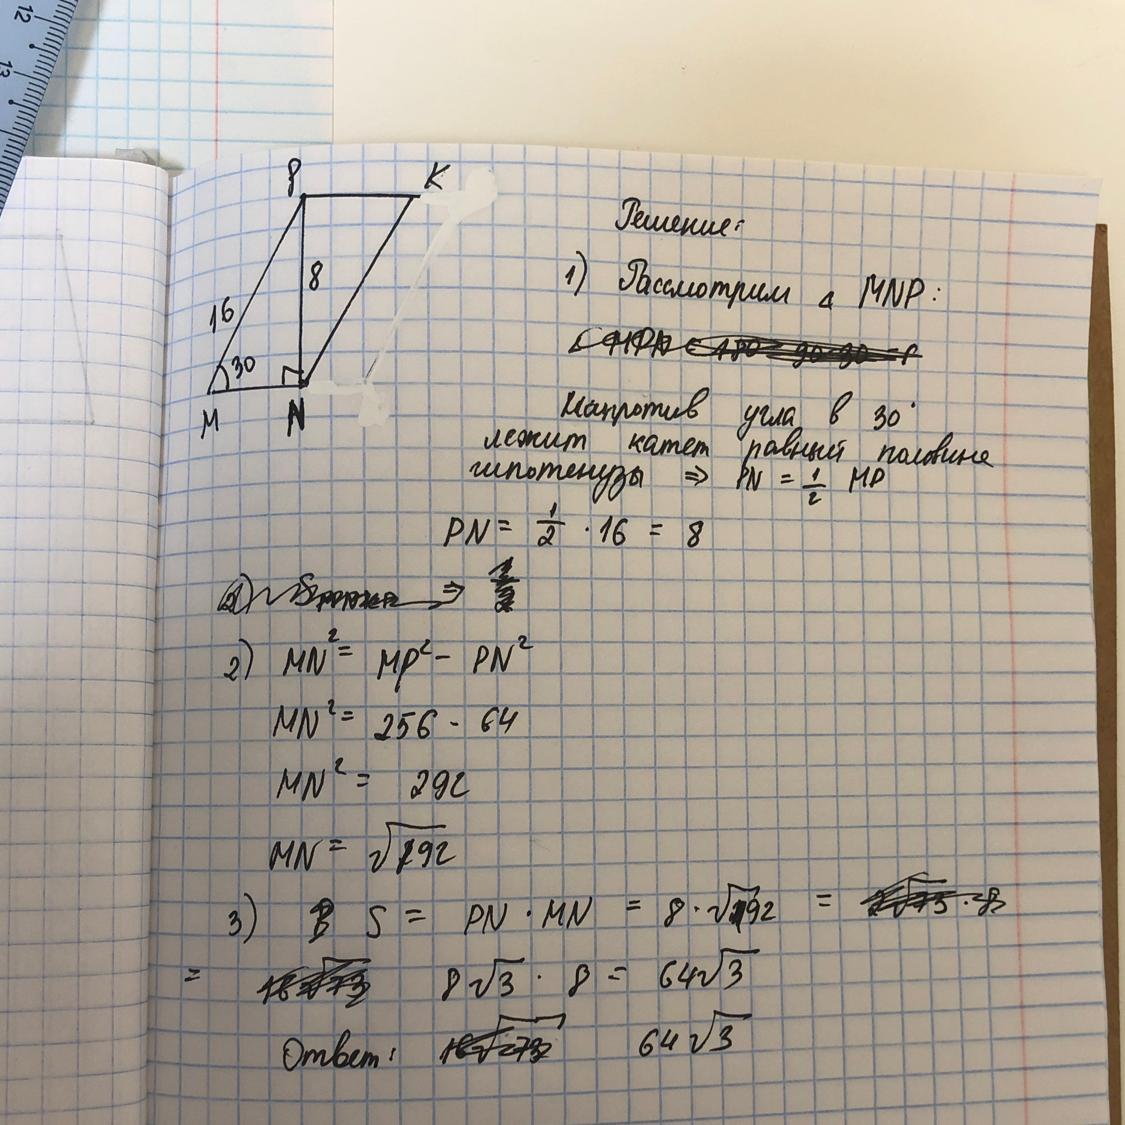 12
13
P
K
16
8
30
M
N
Решение:
1) Рассмотрим △ MNP:
Напротив угла в 30°
лежит катет равный половине
гипотенузы ⇒ PN = 1/2 MP
PN = 1/2 · 16 = 8
2) MN² = MP² - PN²
MN² = 256 - 64
MN² = 292
MN = √192
3) S = PN · MN = 8 · √192 =
= 8√3 · 8 = 64√3
Ответ: 64√3